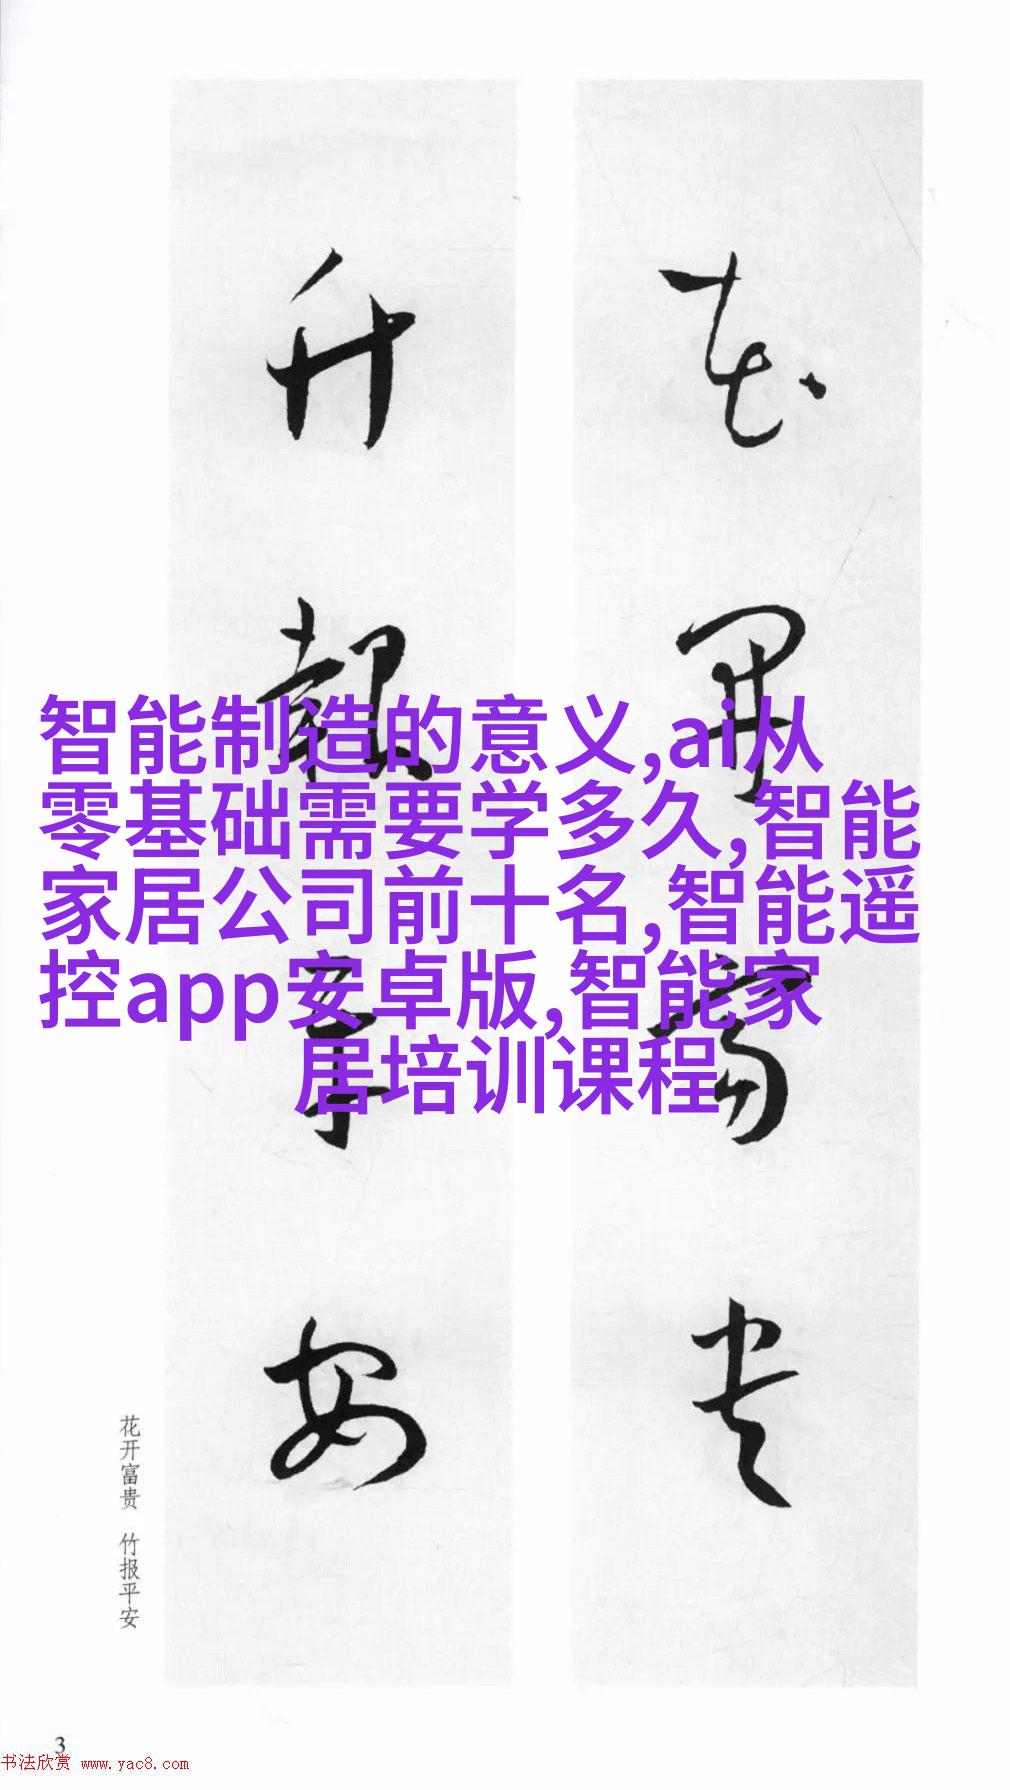 花开富贵
竹报平安
智能制造的意义,ai从
零基础需要学多久,智能
家居公司前十名,智能遥
控app安卓版,智能家
居培训课程
花开富贵 竹报平安
3
书法欣赏 www.yac8.com